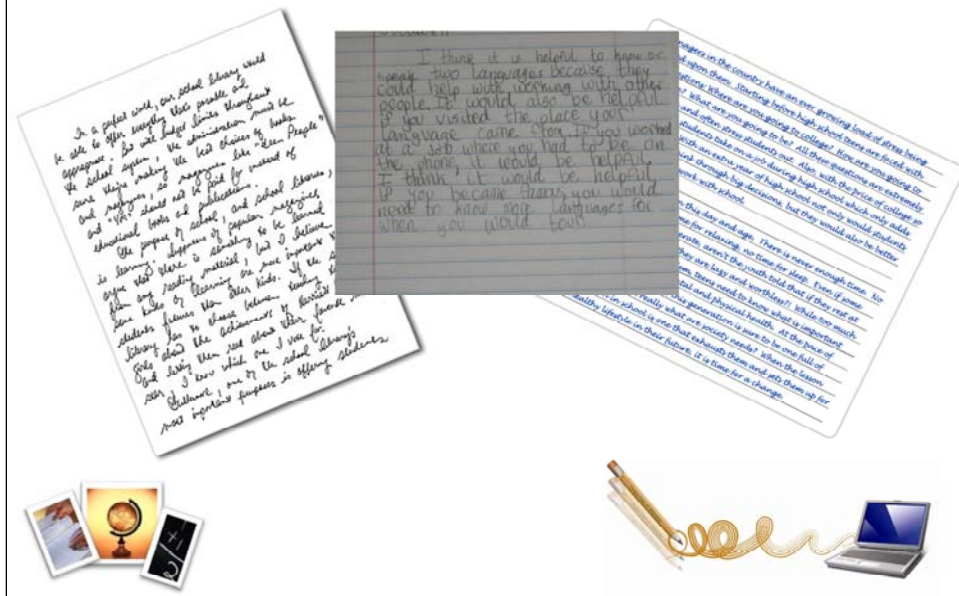 In a perfect world, our school library would
be able to offer everything that's possible and
appropriate, but with budget limits throughout
the school system, the administration must be
sure they're making the best choices of books
and magazines, so magazines like "Teen People"
and "YM" should not be paid for instead of
educational books and publications.
The purpose of school, and school libraries,
is learning. Supporters of popular magazines
argue that there is something to be learned
from any reading material, but I believe
some kinds of learning are more important to
students futures than other kids. If the s
library has to choose between teaching
girls about the achievements of
and letting them read about their favorite
star, I know which one I vote for.
Furthermore, one of the school library's
most important purposes is offering students
I think it is helpful to know or
speak two languages because they
could help with working with other
people. It would also be helpful
if you visited the place your
language came from. If you worked
at a job where you had to be on
the phone, it would be helpful.
I think, it would be helpful
if you became famous, you would
need to know more languages for
when you would tour.
nagers in the country have an ever growing load of stress being
d upon them. Starting before high school teens are faced with
estions: Where are you going to college? How are you going to
? What are you going to be? All these questions are extremely
and often stress students out. Also, with the price of college so
students take on a job during high school which only adds
With an extra year of high school not only would students
int through big decisions, but they would also be better
work with school.
n this day and age. There is never enough time. No
me for relaxing, no time for sleep. Even if some
erate, aren't the youth told that if they rest at
they are lazy and worthless?! While too much
em, teens need to know what is important
tal and physical health. At the price of
this generation is sure to be one full of
really what are society needs? When the lesson
in school is one that exhausts them and sets them up for
ealthy lifestyle in their future, it is time for a change.